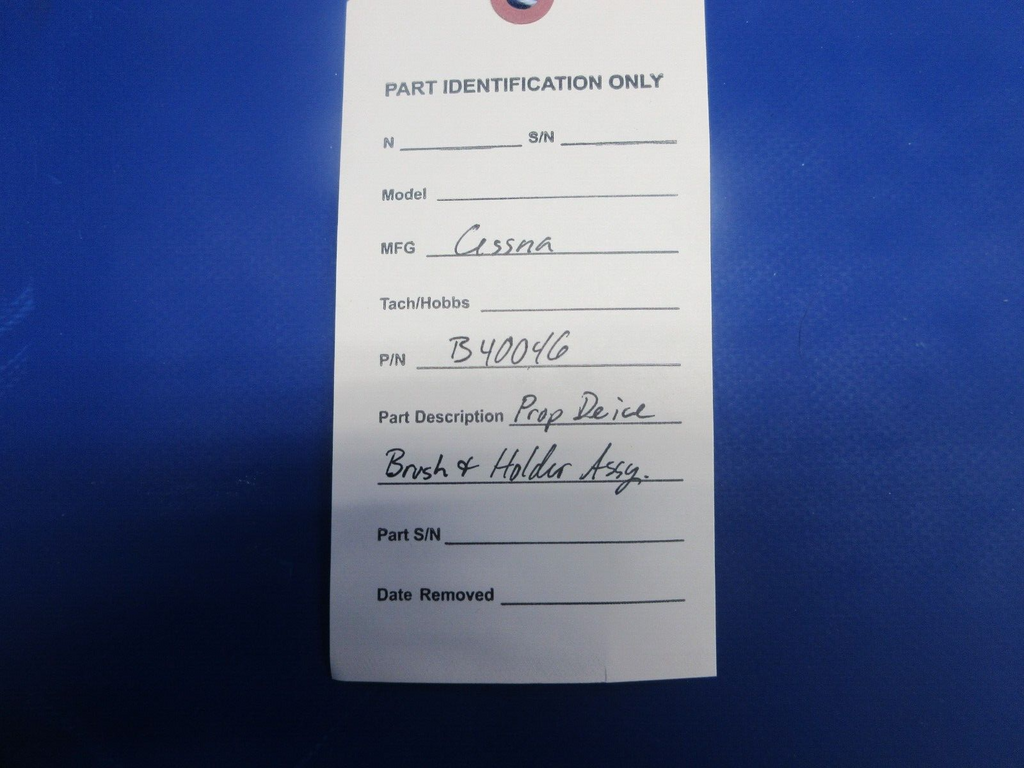 PART IDENTIFICATION ONLY
N S/N
Model
MFG Cessna
Tach/Hobbs
P/N B40046
Part Description Prop Deice
Brush & Holder Assy.
Part S/N
Date Removed